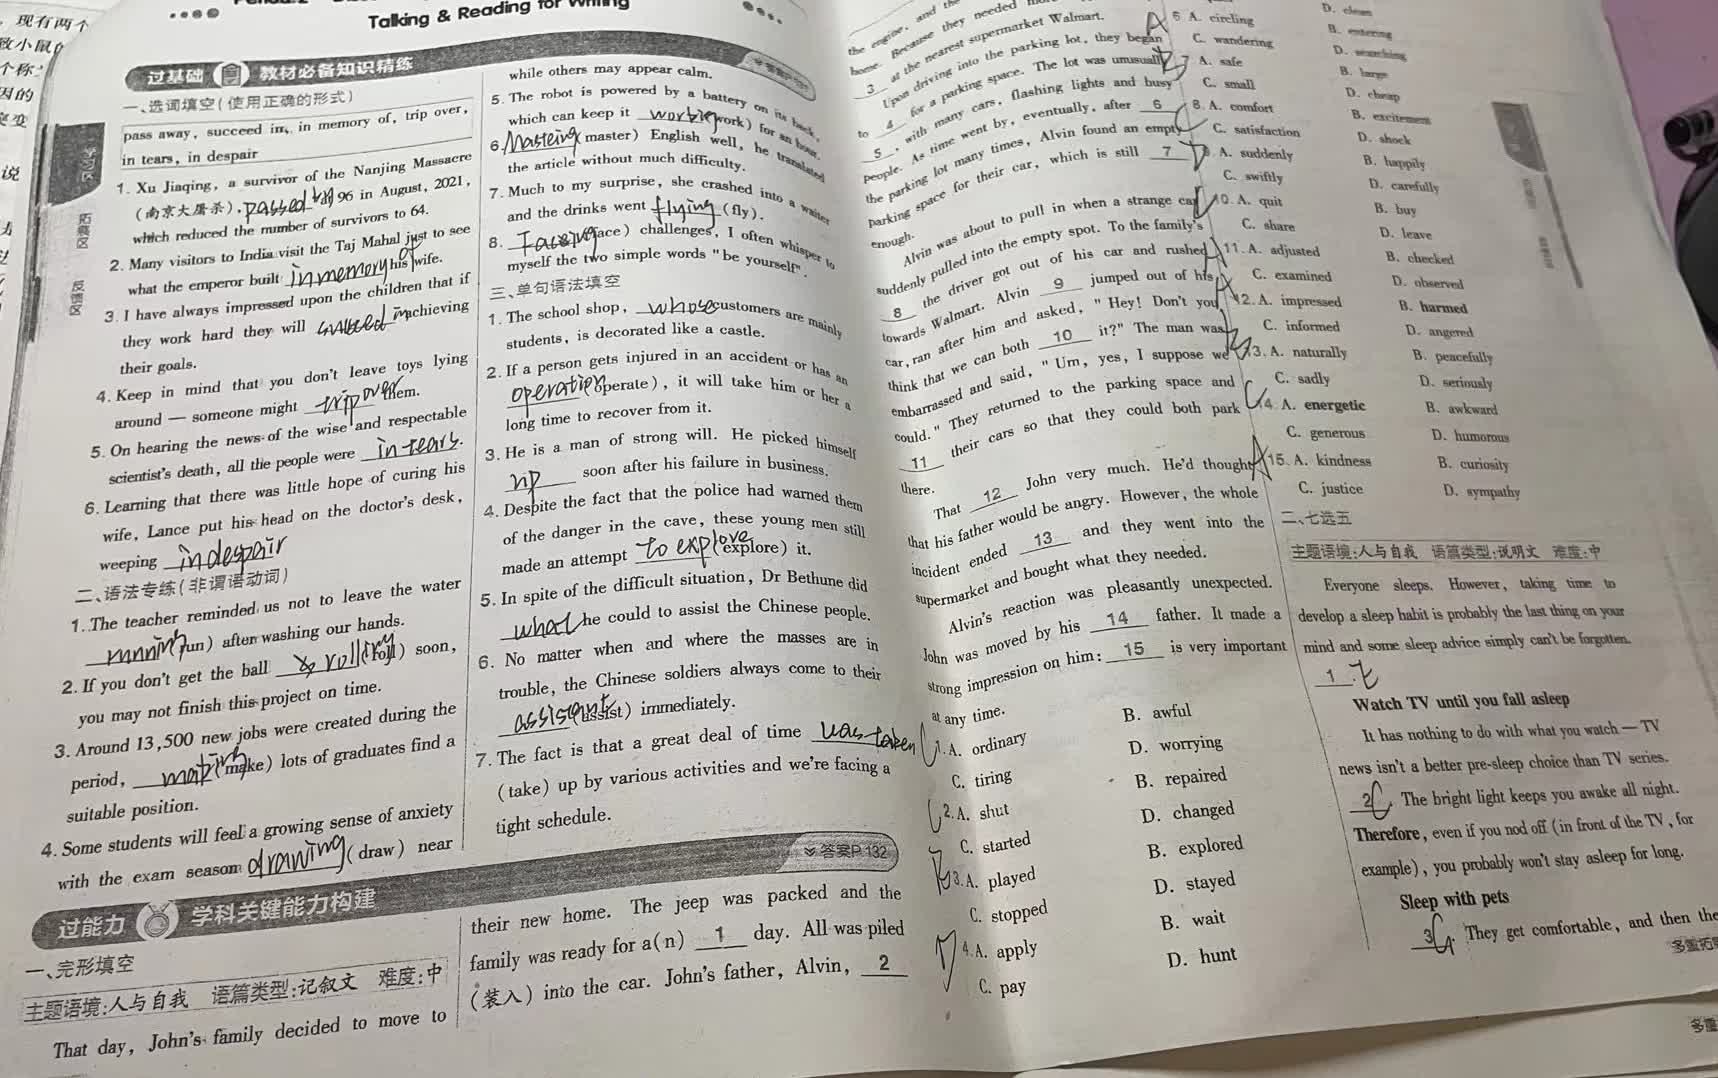 现有两个
Talking & Reading for Writing
过基础 教材必备知识精练
一、选词填空(使用正确的形式)
pass away, succeed in, in memory of, trip over,
in tears, in despair
1. Xu Jiaqing, a survivor of the Nanjing Massacre
(南京大屠杀), passed 96 in August, 2021,
which reduced the number of survivors to 64.
2. Many visitors to India visit the Taj Mahal just to see
what the emperor built in memory of his wife.
3. I have always impressed upon the children that if
they work hard they will succeed in achieving
their goals.
4. Keep in mind that you don't leave toys lying
around — someone might trip over them.
5. On hearing the news of the wise and respectable
scientist's death, all the people were in tears.
6. Learning that there was little hope of curing his
wife, Lance put his head on the doctor's desk,
weeping in despair
二、语法专练(非谓语动词)
1. The teacher reminded us not to leave the water
running (run) after washing our hands.
2. If you don't get the ball rolling (roll) soon,
you may not finish this project on time.
3. Around 13,500 new jobs were created during the
period, making (make) lots of graduates find a
suitable position.
4. Some students will feel a growing sense of anxiety
with the exam season drawing (draw) near
while others may appear calm.
5. The robot is powered by a battery on its back,
which can keep it working (work) for an hour.
6. (master) English well, he translated
the article without much difficulty.
7. Much to my surprise, she crashed into a waiter
and the drinks went flying (fly).
8. Facing (face) challenges, I often whisper to
myself the two simple words "be yourself".
三、单句语法填空
1. The school shop, whose customers are mainly
students, is decorated like a castle.
2. If a person gets injured in an accident or has an
operation (operate), it will take him or her a
long time to recover from it.
3. He is a man of strong will. He picked himself
up soon after his failure in business.
4. Despite the fact that the police had warned them
of the danger in the cave, these young men still
made an attempt to explore (explore) it.
5. In spite of the difficult situation, Dr Bethune did
what he could to assist the Chinese people.
6. No matter when and where the masses are in
trouble, the Chinese soldiers always come to their
assisant (assist) immediately.
7. The fact is that a great deal of time was taken
(take) up by various activities and we're facing a
tight schedule.
过能力 学科关键能力构建
答案P.132
一、完形填空
主题语境:人与自我 语篇类型:记叙文 难度:中
That day, John's family decided to move to
their new home. The jeep was packed and the
family was ready for a(n) 1 day. All was piled
(装入) into the car. John's father, Alvin, 2
the engine, and the
home. Because they needed
3 at the nearest supermarket Walmart.
Upon driving into the parking lot, they began
to 4 for a parking space. The lot was unusually
5, with many cars, flashing lights and busy
people. As time went by, eventually, after 6
the parking lot many times, Alvin found an empty
parking space for their car, which is still 7
enough.
Alvin was about to pull in when a strange car
suddenly pulled into the empty spot. To the family's
8 the driver got out of his car and rushed
towards Walmart. Alvin 9 jumped out of his
car, ran after him and asked, "Hey! Don't you
think that we can both 10 it?" The man was
embarrassed and said, "Um, yes, I suppose we
could." They returned to the parking space and
11 their cars so that they could both park
there.
That 12 John very much. He'd thought
that his father would be angry. However, the whole
incident ended 13 and they went into the
supermarket and bought what they needed.
Alvin's reaction was pleasantly unexpected.
John was moved by his 14 father. It made a
strong impression on him: 15 is very important
at any time.
1. A. ordinary B. awful
C. tiring D. worrying
2. A. shut B. repaired
C. started D. changed
3. A. played B. explored
C. stopped D. stayed
4. A. apply B. wait
C. pay D. hunt
D. clean
6. A. circling B. entering
C. wandering D. searching
7. A. safe B. large
C. small D. cheap
8. A. comfort B. excitement
C. satisfaction D. shock
9. A. suddenly B. happily
C. swiftly D. carefully
10. A. quit B. buy
C. share D. leave
11. A. adjusted B. checked
C. examined D. observed
12. A. impressed B. harmed
C. informed D. angered
13. A. naturally B. peacefully
C. sadly D. seriously
14. A. energetic B. awkward
C. generous D. humorous
15. A. kindness B. curiosity
C. justice D. sympathy
二、七选五
主题语境:人与自我 语篇类型:说明文 难度:中
Everyone sleeps. However, taking time to
develop a sleep habit is probably the last thing on your
mind and some sleep advice simply can't be forgotten.
1
Watch TV until you fall asleep
It has nothing to do with what you watch — TV
news isn't a better pre-sleep choice than TV series.
2 C. The bright light keeps you awake all night.
Therefore, even if you nod off (in front of the TV, for
example), you probably won't stay asleep for long.
Sleep with pets
3 G. They get comfortable, and then the